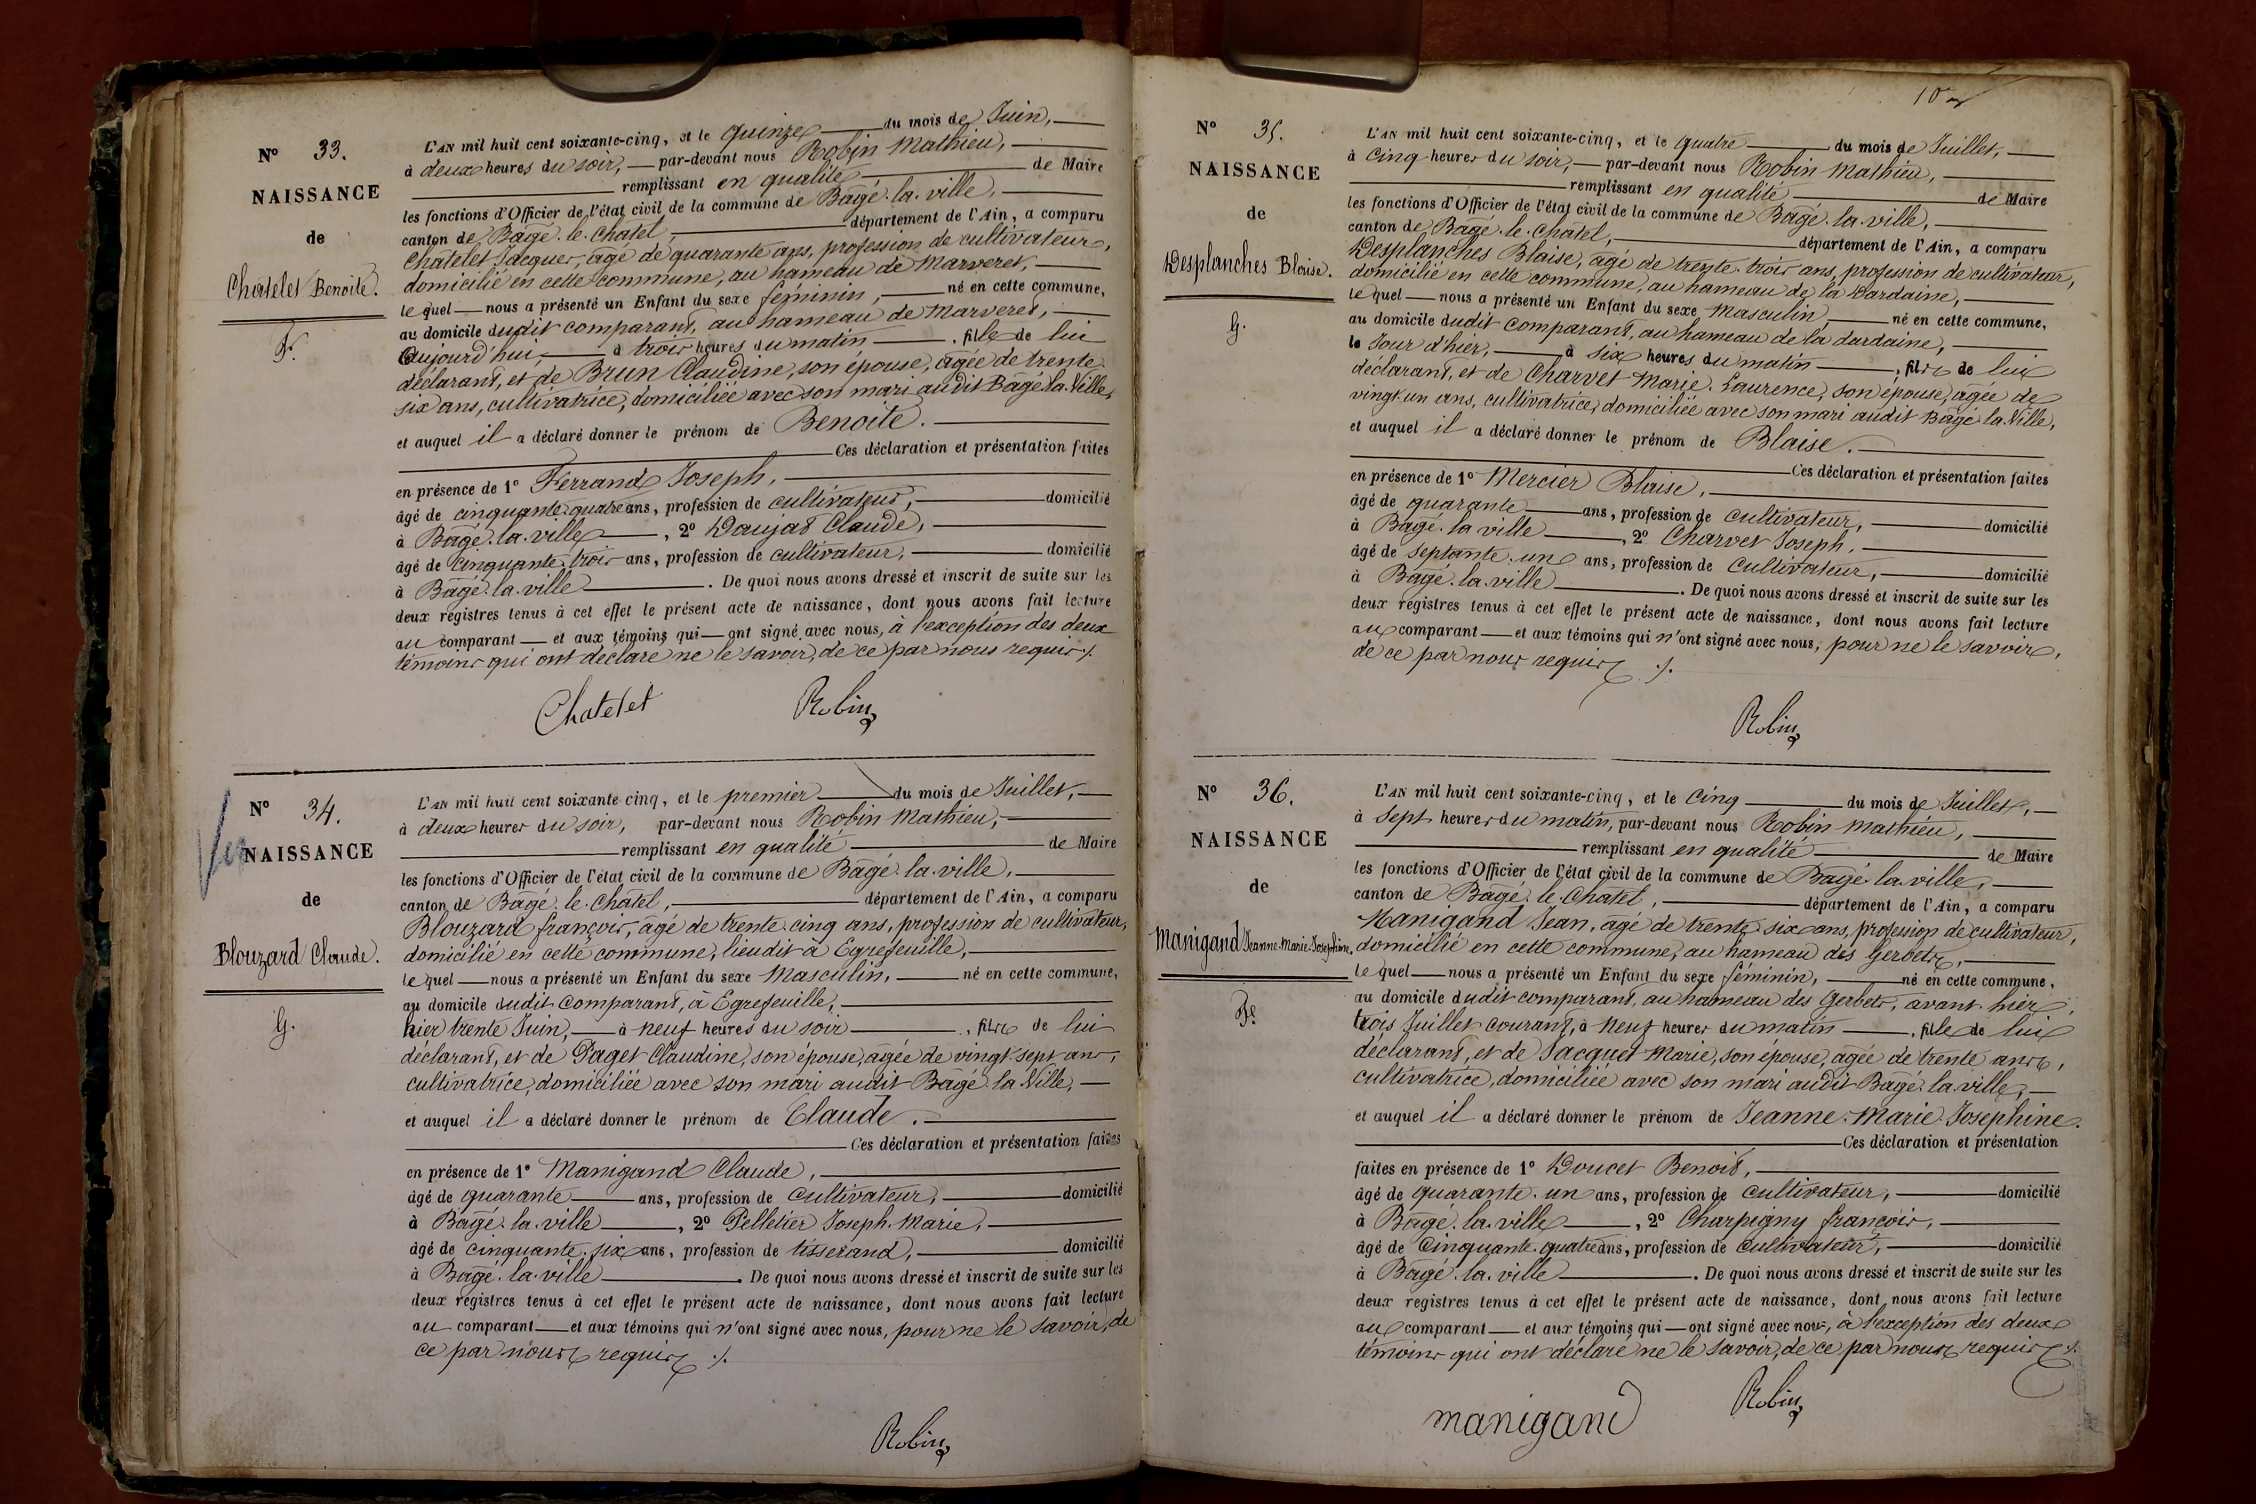 N° 33.
NAISSANCE
de
Châtelet Benoite.
F.
L'AN mil huit cent soixante-cinq, et le quinze du mois de Juin,
à deux heures du soir, par-devant nous Robin Mathieu,
remplissant en qualité de Maire
les fonctions d'Officier de l'état civil de la commune de Bâgé-la-ville,
canton de Bâgé-le-Châtel, département de l'Ain, a comparu
Châtelet Jacques, âgé de quarante ans, profession de cultivateur,
domicilié en cette commune, au hameau de Marveret,
lequel nous a présenté un Enfant du sexe féminin, né en cette commune,
au domicile dudit comparant, au hameau de Marveret,
aujourd'hui, à trois heures du matin, fille de lui
déclarant, et de Brun Claudine, son épouse, âgée de trente-
six ans, cultivatrice, domiciliée avec son mari audit Bâgé-la-Ville,
et auquel il a déclaré donner le prénom de Benoite.
Ces déclaration et présentation faites
en présence de 1° Ferrand Joseph,
âgé de cinquante-quatre ans, profession de cultivateur, domicilié
à Bâgé-la-ville, 2° Daujat Claude,
âgé de cinquante-trois ans, profession de cultivateur, domicilié
à Bâgé-la-ville. De quoi nous avons dressé et inscrit de suite sur les
deux registres tenus à cet effet le présent acte de naissance, dont nous avons fait lecture
au comparant et aux témoins qui ont signé avec nous, à l'exception des deux
témoins qui ont déclaré ne le savoir, de ce par nous requis ./.
Chatelet Robin
N° 34.
NAISSANCE
de
Blouzard Claude.
G.
L'AN mil huit cent soixante-cinq, et le premier du mois de Juillet,
à deux heures du soir, par-devant nous Robin Mathieu,
remplissant en qualité de Maire
les fonctions d'Officier de l'état civil de la commune de Bâgé-la-ville,
canton de Bâgé-le-Châtel, département de l'Ain, a comparu
Blouzard françois, âgé de trente-cinq ans, profession de cultivateur,
domicilié en cette commune, lieudit à Egrefeuille,
lequel nous a présenté un Enfant du sexe Masculin, né en cette commune,
au domicile dudit comparant, à Egrefeuille,
hier trente Juin, à neuf heures du soir, fils de lui
déclarant, et de Paget Claudine, son épouse, âgée de vingt-sept ans,
cultivatrice, domiciliée avec son mari audit Bâgé-la-Ville,
et auquel il a déclaré donner le prénom de Claude.
Ces déclaration et présentation faites
en présence de 1° Manigand Claude,
âgé de quarante ans, profession de cultivateur, domicilié
à Bâgé-la-ville, 2° Pelletier Joseph-Marie,
âgé de cinquante-six ans, profession de tisserand, domicilié
à Bâgé-la-ville. De quoi nous avons dressé et inscrit de suite sur les
deux registres tenus à cet effet le présent acte de naissance, dont nous avons fait lecture
au comparant et aux témoins qui n'ont signé avec nous, pour ne le savoir, de
ce par nous requis ./.
Robin
10
N° 35.
NAISSANCE
de
Desplanches Blaise.
G.
L'AN mil huit cent soixante-cinq, et le quatre du mois de Juillet,
à cinq heures du soir, par-devant nous Robin Mathieu,
remplissant en qualité de Maire
les fonctions d'Officier de l'état civil de la commune de Bâgé-la-ville,
canton de Bâgé-le-Châtel, département de l'Ain, a comparu
Desplanches Blaise, âgé de trente-trois ans, profession de cultivateur,
domicilié en cette commune, au hameau de la Dardaine,
lequel nous a présenté un Enfant du sexe Masculin, né en cette commune,
au domicile dudit comparant, au hameau de la dardaine,
le Jour d'hier, à six heures du matin, fils de lui
déclarant, et de Charvet Marie-Laurence, son épouse, âgée de
vingt-un ans, cultivatrice, domiciliée avec son mari audit Bâgé-la-Ville,
et auquel il a déclaré donner le prénom de Blaise.
Ces déclaration et présentation faites
en présence de 1° Mercier Blaise,
âgé de quarante ans, profession de cultivateur, domicilié
à Bâgé-la-ville, 2° Charvet Joseph,
âgé de septante-un ans, profession de cultivateur, domicilié
à Bâgé-la-ville. De quoi nous avons dressé et inscrit de suite sur les
deux registres tenus à cet effet le présent acte de naissance, dont nous avons fait lecture
au comparant et aux témoins qui n'ont signé avec nous, pour ne le savoir,
de ce par nous requis ./.
Robin
N° 36.
NAISSANCE
de
Manigand Jeanne-Marie-Josephine.
F.
L'AN mil huit cent soixante-cinq, et le cinq du mois de Juillet,
à sept heures du matin, par-devant nous Robin Mathieu,
remplissant en qualité de Maire
les fonctions d'Officier de l'état civil de la commune de Bâgé-la-ville,
canton de Bâgé-le-Châtel, département de l'Ain, a comparu
Manigand Jean, âgé de trente-six ans, profession de cultivateur,
domicilié en cette commune, au hameau des Gerbets,
lequel nous a présenté un Enfant du sexe féminin, né en cette commune,
au domicile dudit comparant, au hameau des Gerbets, avant-hier,
trois Juillet courant, à neuf heures du matin, fille de lui
déclarant, et de Jacquet Marie, son épouse, âgée de trente ans,
cultivatrice, domiciliée avec son mari audit Bâgé-la-ville,
et auquel il a déclaré donner le prénom de Jeanne-Marie-Josephine.
Ces déclaration et présentation
faites en présence de 1° Doucet Benoit,
âgé de quarante-un ans, profession de cultivateur, domicilié
à Bâgé-la-ville, 2° Charpigny françois,
âgé de Cinquante-quatre ans, profession de cultivateur, domicilié
à Bâgé-la-ville. De quoi nous avons dressé et inscrit de suite sur les
deux registres tenus à cet effet le présent acte de naissance, dont nous avons fait lecture
au comparant et aux témoins qui ont signé avec nous, à l'exception des deux
témoins qui ont déclaré ne le savoir, de ce par nous requis ./.
manigand Robin